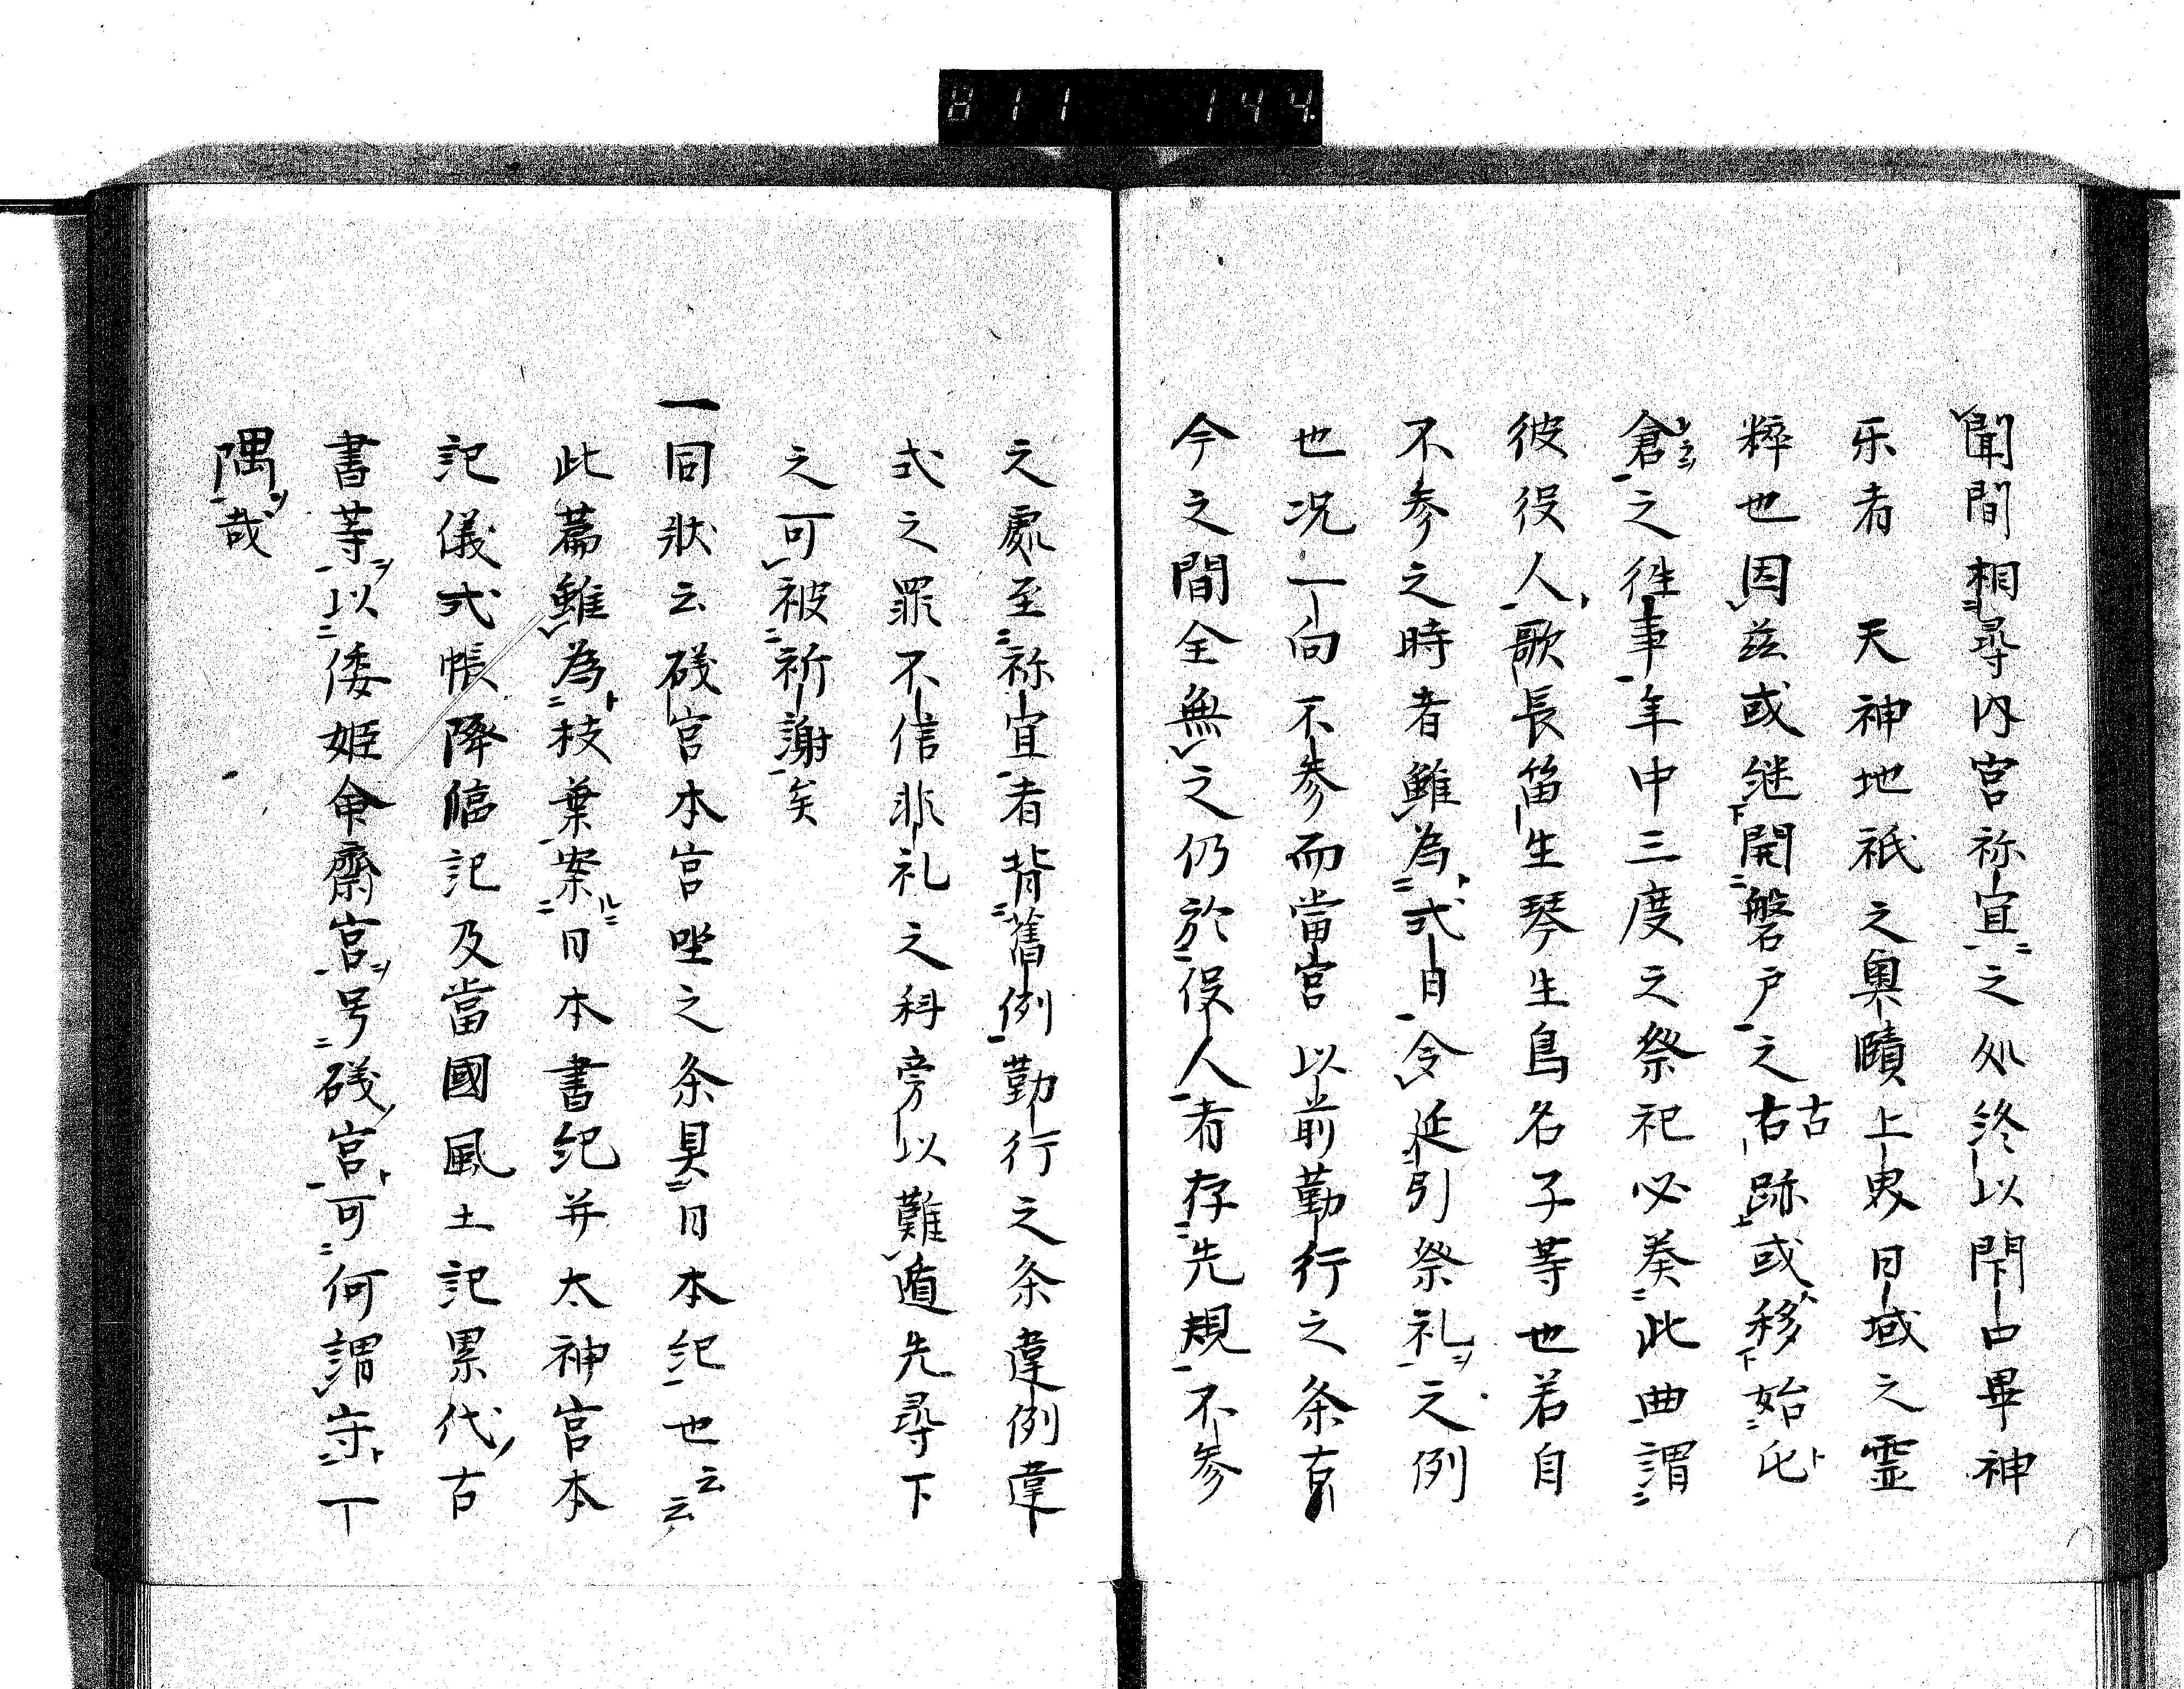 811 144
聞間相尋内宮祢宜之処終以閇口畢神
乐者 天神地祇之奥賾上界日域之霊
粹也因玆或継開磐戸之右跡或移始氐
古
倉之徃事年中三度之祭祀必奏此曲謂
彼役人歌長笛生琴生鳥名子等也若自
不参之時者雖為式日令延引祭礼之例
也况一向不参而當宮以前勤行之条
今之間全無之仍於役人者存先規不参
之處至祢宜者背舊例勤行之条違例違
式之罪不信非礼之科旁以難遁先尋下
之可被祈謝矣
一同狀云礒宮本宮唑之条具日本紀也云云
此篇雖為枝葉案日本書紀并太神宮本
記儀式帳降臨記及當國風土記累代古
書等以倭姫命齋宮号礒宮可何謂守一
隅哉